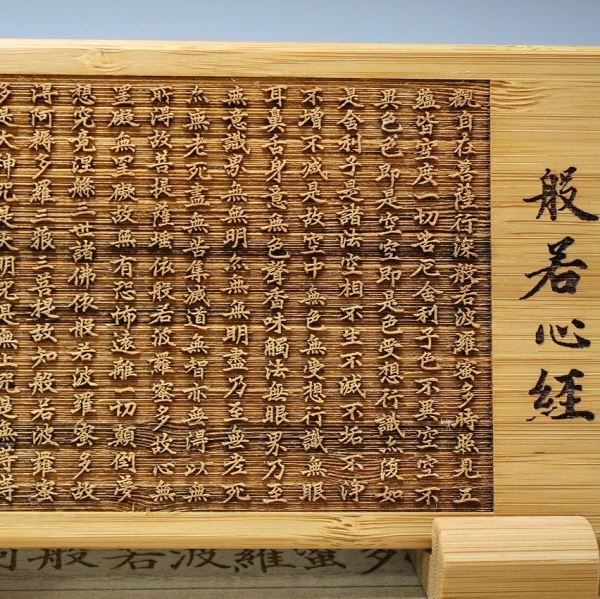 般若心經
觀自在菩薩行深般若波羅蜜多時照見五
蘊皆空度一切苦厄舍利子色不異空空不
異色色即是空空即是色受想行識亦復如
是舍利子是諸法空相不生不滅不垢不淨
不增不減是故空中無色無受想行識無眼
耳鼻舌身意無色聲香味觸法無眼界乃至
無意識界無無明亦無無明盡乃至無老死
亦無老死盡無苦集滅道無智亦無得以無
所得故菩提薩埵依般若波羅蜜多故心無
罣礙無罣礙故無有恐怖遠離一切顛倒夢
想究竟涅槃三世諸佛依般若波羅蜜多故
得阿耨多羅三藐三菩提故知般若波羅蜜
多是大神咒是大明咒是無上咒是無等等
般若波羅蜜多